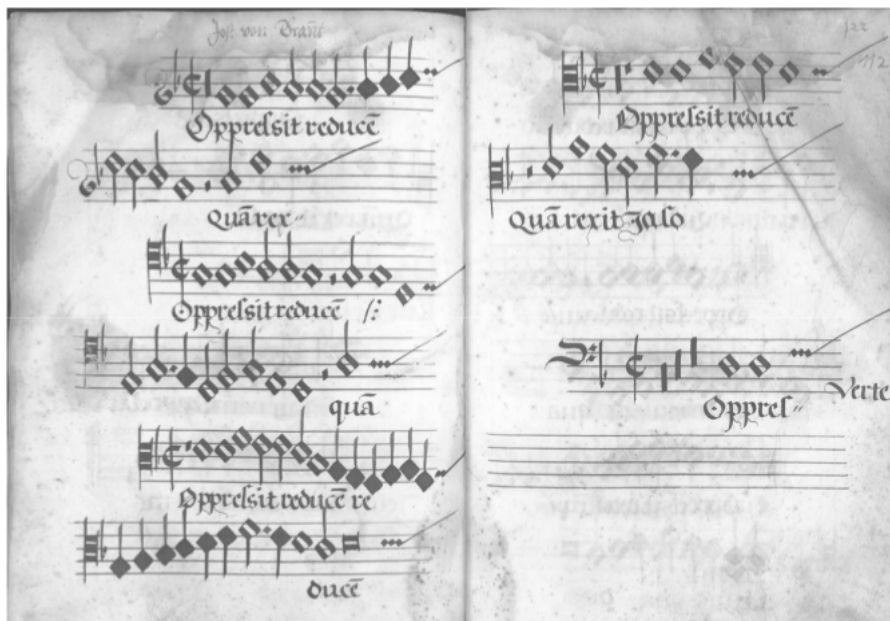 Jost von Brant
Oppressit reducē
Quā rex-
Oppressit reducē /:
quā
Oppressit reducē re
ducē
122
Oppressit reducē
Quā rexit Jaso
Oppres-
Verte